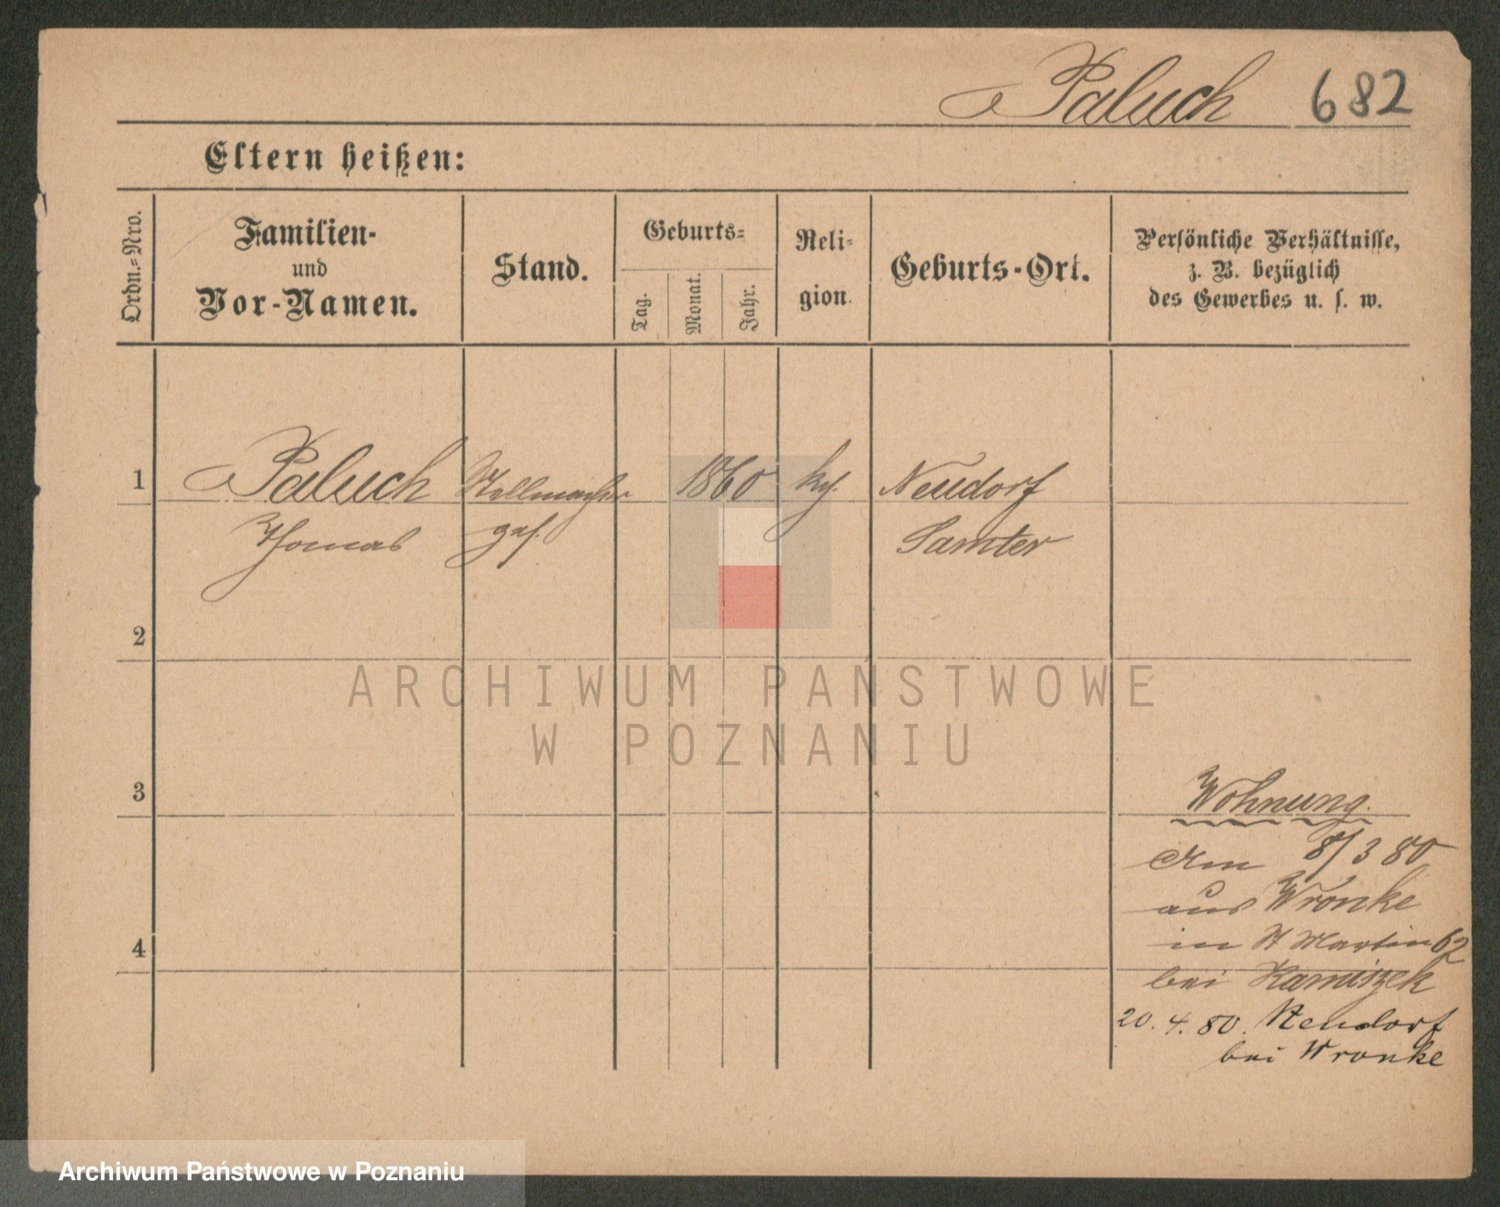 Paluch 682
Eltern heißen:
Ordn.=Nro.
Familien-
und
Vor-Namen.
Stand.
Geburts=
Tag.
Monat.
Jahr.
Reli=
gion.
Geburts-Ort.
Persönliche Verhältnisse,
z. B. bezüglich
des Gewerbes u. s. w.
1 Paluch Stellmacher 1860 kth. Neudorf
Thomas ges. Samter
2
3
4
Wohnung.
Am 8/3 80
aus Wronke
in St Martin 62
bei Kamiszek
20. 4. 80. Neudorf
bei Wronke
ARCHIWUM PAŃSTWOWE
W POZNANIU
Archiwum Państwowe w Poznaniu